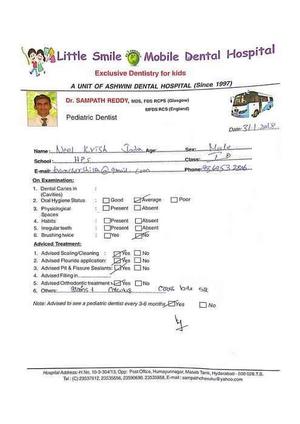 Little Smile Mobile Dental Hospital
Exclusive Dentistry for kids
A UNIT OF ASHWINI DENTAL HOSPITAL (Since 1997)
Dr. SAMPATH REDDY, MDS, FDS RCPS (Glasgow)
MFDS RCS (England)
Pediatric Dentist
Date: 31/1/2018
Name: Neel Krish Age: Sex: Male
School: HPS Class: I D
E-mail: Phone:
On Examination:
1. Dental Caries in :
(Cavities)
2. Oral Hygiene Status : Good Average Poor
3. Physiological : Present Absent
Spaces
4. Habits : Present Absent
5. Irregular teeth : Present Absent
6. Brushing twice : Yes No
Adviced Treatment:
1. Advised Scaling/Cleaning : Yes No
2. Advised Flouride application: Yes No
3. Advised Pit & Fissure Sealants: Yes No
4. Advised Filling in
5. Advised Orthodontic treatment: Yes No
6. Others:
Note: Advised to see a pediatric dentist every 3-6 months Yes No
Hospital Address: H.No. 10-3-304/13, Opp: Post Office, Humayunnagar, Masab Tank, Hyderabad - 500 028.T.S.